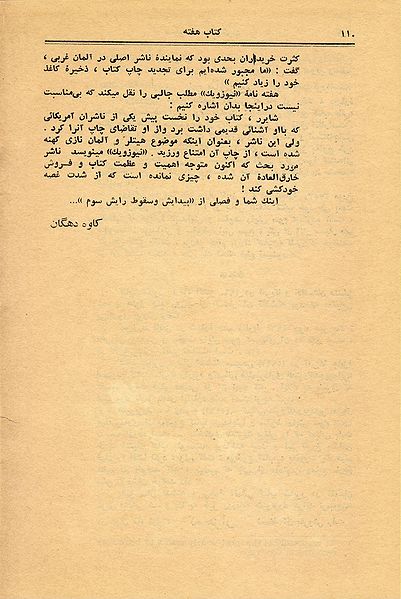 ۱۱۰
کتاب هفته
کثرت خریداران بحدی بود که نمایندهٔ ناشر اصلی در المان غربی ،
گفت : «ما مجبور شده‌ایم برای تجدید چاپ کتاب ، ذخیرهٔ کاغذ
خود را زیاد کنیم »
هفته نامهٔ «نیوزویك» مطلب جالبی را نقل میکند که بی‌مناسبت
نیست دراینجا بدان اشاره کنیم :
شایرر ، کتاب خود را نخست پیش یکی از ناشران آمریکائی
که بااو آشنائی قدیمی داشت برد واز او تقاضای چاپ آنرا کرد .
ولی این ناشر ، بعنوان اینکه موضوع هیتلر و آلمان نازی کهنه
شده است ، از چاپ آن امتناع ورزید . «نیوزویك» مینویسد ناشر
مورد بحث که اکنون متوجه اهمیت و عظمت کتاب و فروش
خارق‌العادهٔ آن شده ، چیزی نمانده است که از شدت غصه
خودکشی کند !
اینك شما و فصلی از «پیدایش وسقوط رایش سوم »...
کاوه دهگان